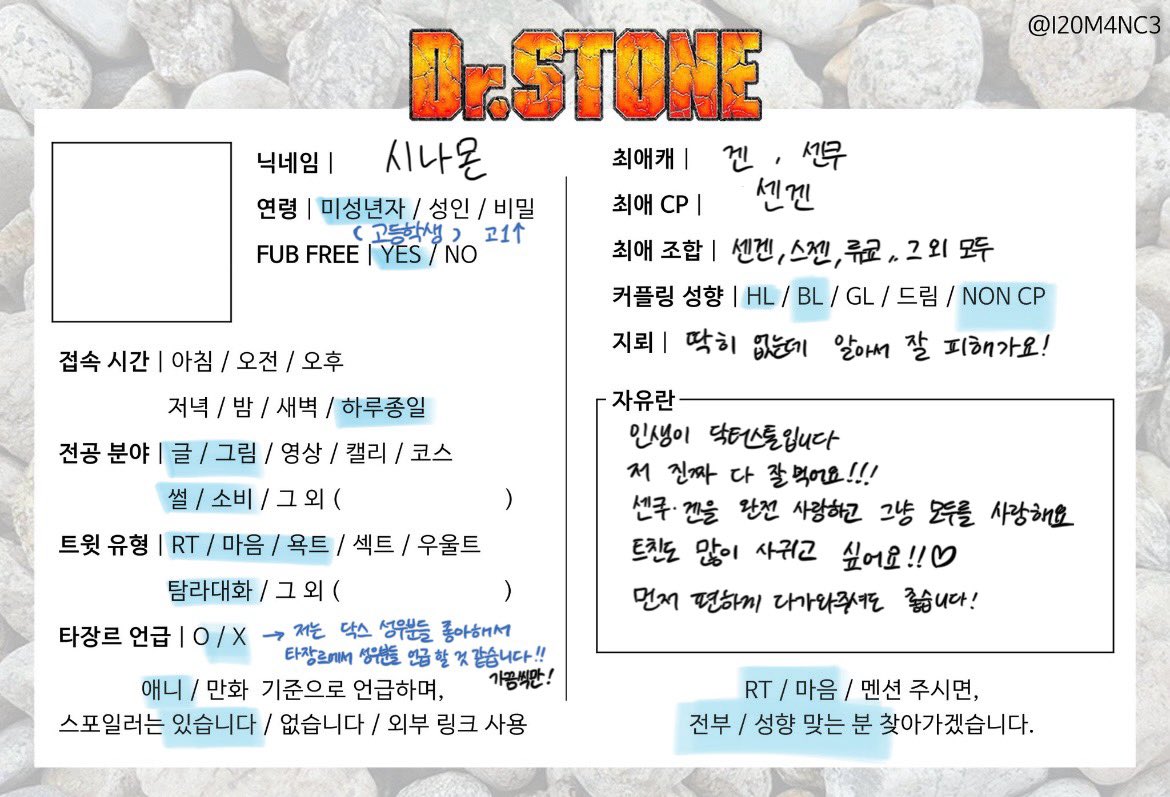 @I20M4NC3
Dr.STONE
닉네임 | 시나몬
연령 | 미성년자 / 성인 / 비밀
(고등학생) 고1↑
FUB FREE | YES / NO
접속 시간 | 아침 / 오전 / 오후
저녁 / 밤 / 새벽 / 하루종일
전공 분야 | 글 / 그림 / 영상 / 캘리 / 코스
썰 / 소비 / 그 외 ( )
트윗 유형 | RT / 마음 / 욕트 / 섹트 / 우울트
탐라대화 / 그 외 ( )
타장르 언급 | O / X → 저는 닥스 성우분들 좋아해서
타장르에서 성우분들 언급 할 것 같습니다!!
가끔씩만!
애니 / 만화 기준으로 언급하며,
스포일러는 있습니다 / 없습니다 / 외부 링크 사용
최애캐 | 겐, 센쿠
최애 CP | 센겐
최애 조합 | 센겐, 스젠, 류쿄,, 그 외 모두
커플링 성향 | HL / BL / GL / 드림 / NON CP
지뢰 | 딱히 없는데 알아서 잘 피해가요!
자유란
인생이 닥터스톨입니다
저 진짜 다 잘먹어요!!!
센쿠·겐을 완전 사랑하고 그냥 모두를 사랑해요
트친도 많이 사귀고 싶어요!!♡
먼저 편하게 다가와주셔도 좋습니다!
RT / 마음 / 멘션 주시면,
전부 / 성향 맞는 분 찾아가겠습니다.